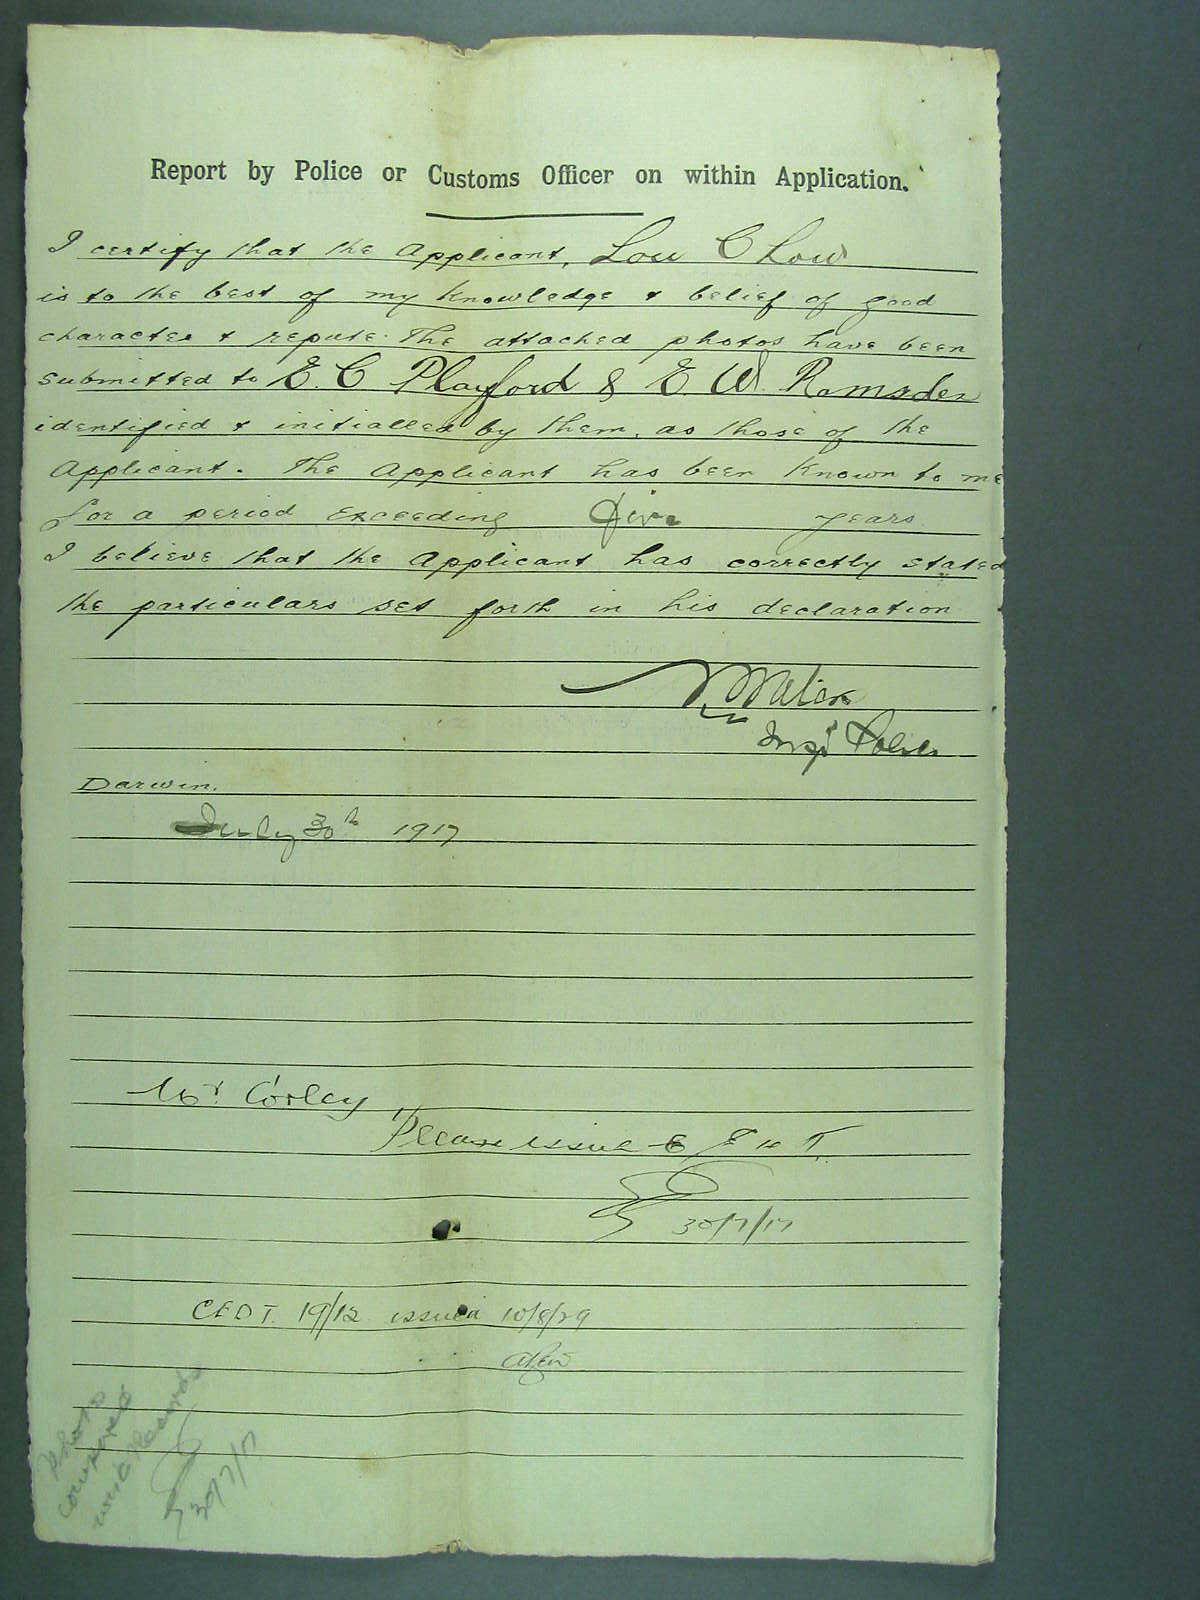 Report by Police or Customs Officer on within Application.
I certify that the Applicant, Low C Low
is to the best of my knowledge & belief of good
character & repute. The attached photos have been
submitted to E. C Playford & E. W. Ramsden
identified & initialled by them, as those of the
Applicant. The Applicant has been known to me
for a period exceeding five years
I believe that the Applicant has correctly stated
the particulars set forth in his declaration
Insp Police
Darwin.
July 30th 1917
Mr. Corley
Please issue C E D T.
30/7/17
CEDT. 19/12 issued 10/8/29
Photo
compared
with Records
30/7/17